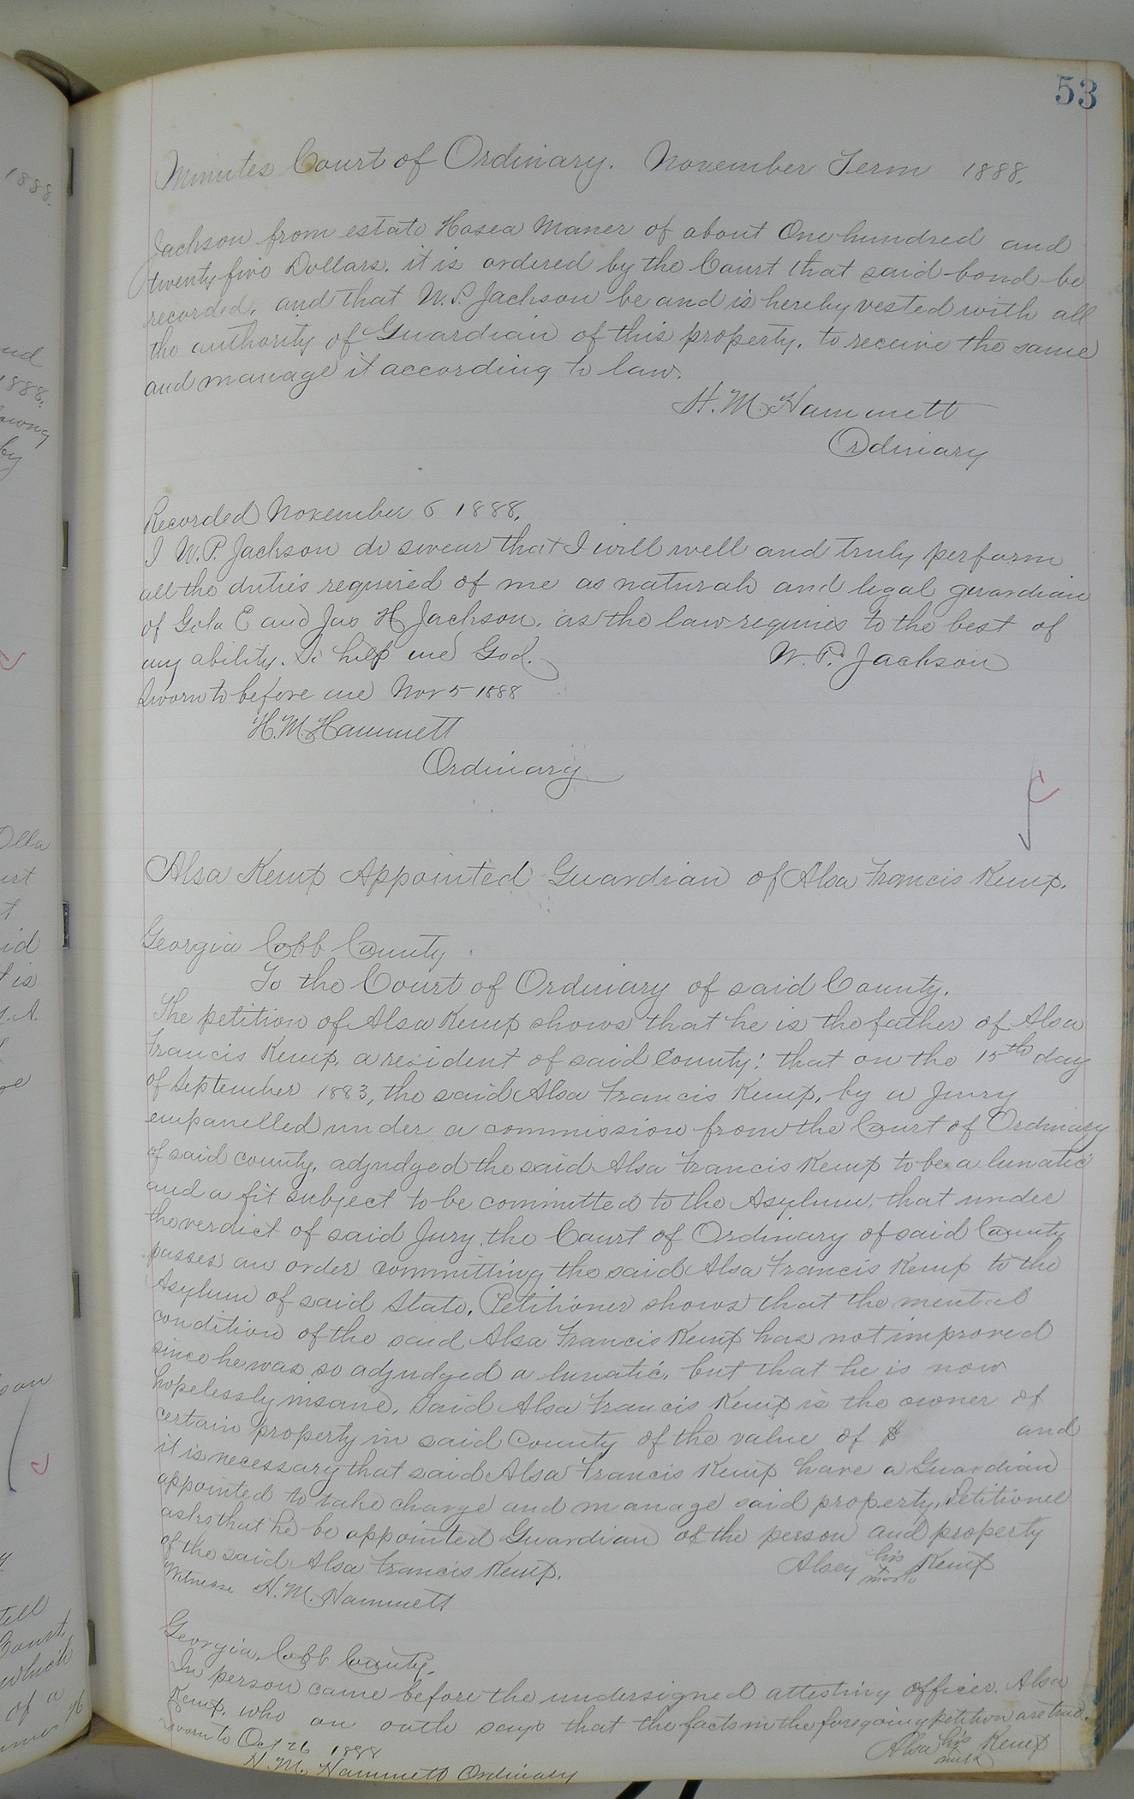 53
Minutes Court of Ordinary. November Term 1888.
Jackson from estate Hosea Maner of about One hundred and
twenty five Dollars. it is ordered by the Court that said bond be
recorded, and that W.P. Jackson be and is hereby vested with all
the authority of Guardian of this property. to receive the same
and manage it according to law.
H. M. Hammett
Ordinary
Recorded November 6 1888.
I W.P. Jackson do swear that I will well and truly perform
all the duties required of me as natural and legal guardian
of Gola E and Jas H Jackson. as the law requires to the best of
my ability. So help me God.
W. P. Jackson
Sworn to before me Nov 5 1888
H. M. Hammett
Ordinary
Alsa Kemp Appointed Guardian of Alsa Francis Kemp.
Georgia Cobb County
To the Court of Ordinary of said County.
The petition of Alsa Kemp shows that he is the father of Alsa
Francis Kemp, a resident of said County: that on the 15th day
of September 1883, the said Alsa Francis Kemp, by a Jury
empanelled under a commission from the Court of Ordinary
of said county, adjudged the said Alsa Francis Kemp to be a lunatic
and a fit subject to be committed to the Asylum, that under
the verdict of said Jury, the Court of Ordinary of said County
passes an order committing the said Alsa Francis Kemp to the
Asylum of said State. Petitioner shows that the mental
condition of the said Alsa Francis Kemp has not improved
since he was so adjudged a lunatic, but that he is now
hopelessly insane. Said Alsa Francis Kemp is the owner of
certain property in said County of the value of $ and
it is necessary that said Alsa Francis Kemp have a Guardian
appointed to take charge and manage said property, Petitioner
asks that he be appointed Guardian of the person and property
of the said Alsa Francis Kemp.
Alsey his x mark Kemp
Witness H. M. Hammett
Georgia, Cobb County.
In person came before the undersigned attesting officer. Alsa
Kemp, who on oath says that the facts in the foregoing petition are true.
Sworn to Oct 26 1888
Alsa his x mark Kemp
H. M. Hammett Ordinary